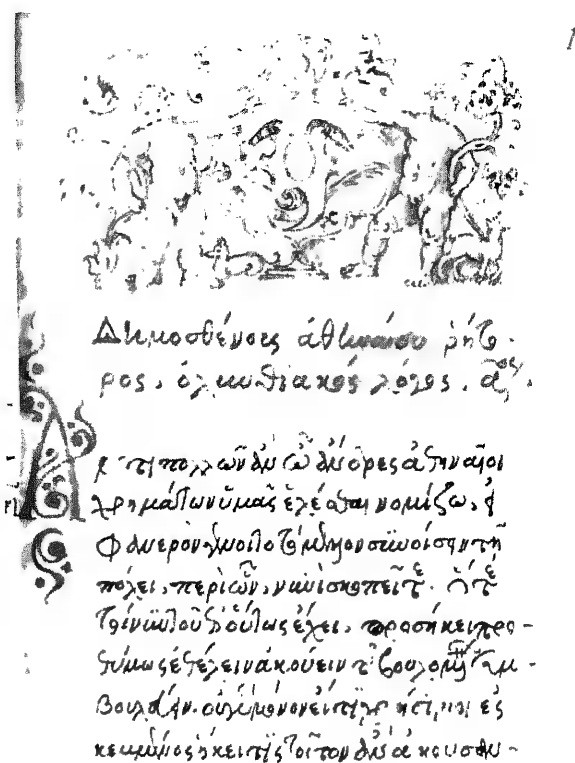 Δημοσθένους ἀθηναίου ῥήτο-
ρος, ὀλυνθιακὸς λόγος, α^ος.
Ἀντὶ πολλῶν ἂν ὦ ἄνδρες ἀθηναῖοι
χρημάτων ὑμᾶς ἑλέσθαι νομίζω, εἰ
φανερὸν γένοιτο τὸ μέλλον συνοίσειν τῇ
πόλει, περὶ ὧν νυνὶ σκοπεῖτε. ὅτε
τοίνυν τοῦθ' οὕτως ἔχει, προσήκει προ-
θύμως ἐθέλειν ἀκούειν τῶν βουλομένων συμ-
βουλεύειν. οὐ γὰρ μόνον εἴ τι χρήσιμον ἐσ
κεμμένος ἥκει τις τοῦτ' ἂν ἀκούσαν-